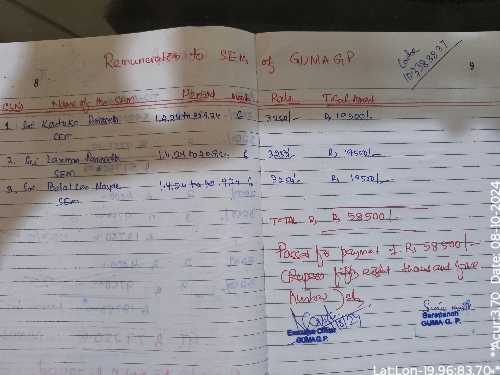 Remuneration to SEMs of GUMA GP
Code
102383837
8
9
SL.No Name of the SEM Period Month Rate Total Amount
1. Sri Kartika Paraseth 1.4.24 to 30.9.24 6 3250/- Rs 19500/-
SEM
2. Sri Laxman Paraseth 1.4.24 to 30.9.24 6 3250/- Rs 19500/-
SEM
3. Sri Balaram Nayak 1.4.24 to 30.9.24 6 3250/- Rs 19500/-
SEM
TOTAL Rs Rs 58500/-
Passed for payment of Rs 58500/-
(Rupees fifty eight thousand five
hundred) only
Executive Officer
GUMA G.P.
Sarapanch
GUMA G. P.
**Acur:3.70, Date: 18-10-2024
LatLon-19.96:83.70*